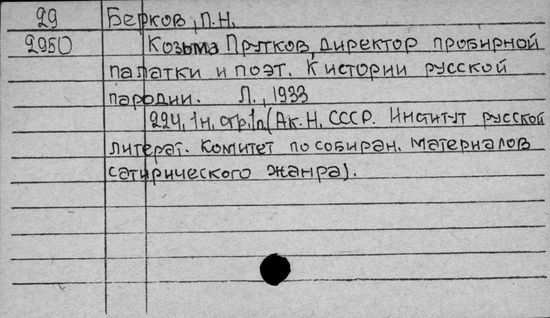 29 Берков, П.Н.
2950 Козьма Прутков, директор пробирной
палатки и поэт. К истории русской
пародии. Л., 1933
224, 1н. стр. 1п (Ак. Н. СССР. Институт русской
литерат. Комитет по собиран. материалов
сатирического жанра).